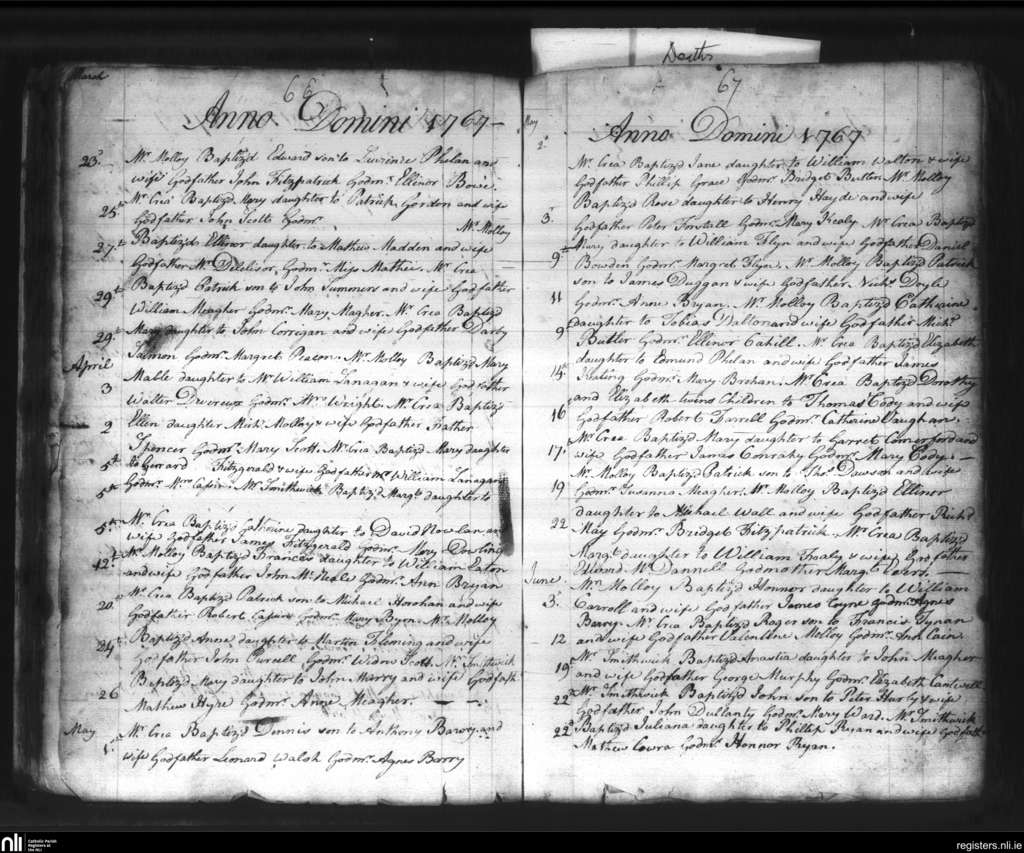 Deaths
March
66
Anno Domini 1767
23d Mr. Molloy Baptiz'd Edward son to Lawrence Phelan and
wife Godfather John Fitzpatrick Godmr. Ellinor Bowe.
25th Mr. Crea Baptiz'd Mary daughter to Patrick Gordon and wife
Godfather John Scott Godmr. Mr. Molloy
27th Baptiz'd Ellinor daughter to Mathew Madden and wife
Godfather Mr. Godmr. Miss Mathew Mr. Crea
29th Baptiz'd Patrick son to John Summers and wife Godfather
William Meagher Godmr. Mary Magher. Mr. Crea Baptiz'd
29th Mary daughter to John Corrigan and wife Godfather Darby
Salmon Godmr. Margret Mr. Molloy Baptiz'd Mary
April
3 Mable daughter to Mr. William Lanagan & wife Godfather
Walter Devereux Godmr. Mrs. Wright. Mr. Crea Baptiz'd
2 Ellen daughter Mich. Molloy & wife Godfather
Spencer Godmr. Mary Scott. Mr. Crea Baptiz'd Mary daughter
5th to Gerrard Fitzgerald & wife Godfather Mr. William Lanagan
5th Godmr. Mrs. Mr. Smithwick Baptiz'd Margt. daughter to
5th Mr. Crea Baptiz'd Catherine daughter to David Nowlan and
wife Godfather James Fitzgerald Godmr. Mary Dowling
12th Mr. Molloy Baptiz'd Frances daughter to William Eaton
and wife Godfather John Godmr. Ann Bryan
20 Mr. Crea Baptiz'd Patrick son to Michael Horohan and wife
Godfather Robert Godmr. Mary Byrn. Mr. Molloy
24th Baptiz'd Anne daughter to Martin Fleming and wife
Godfather John Purcell Godmr. Widw. Scott. Mr. Smithwick
Baptiz'd Mary daughter to John Harry and wife Godfath.
26 Mathew Godmr. Anne Meagher.
May
1st Mr. Crea Baptiz'd Dennis son to Anthony and
wife Godfather Leonard Walsh Godmr. Agnes Barry
67
Anno Domini 1767
May
2 Mr. Crea Baptiz'd Jane daughter to William Walton & wife
Godfather Phillip Grace Godmr. Bridget Butler. Mr. Molloy
Baptiz'd Rose daughter to Henry Hayde and wife
3 Godfather Peter Forstall Godmr. Mary Healy Mr. Crea Baptiz'd
Mary daughter to William Flyn and wife Godfather Daniel
9th Bowden Godmr. Margret Flyn. Mr. Molloy Baptiz'd Patrick
son to James Duggan & wife Godfather Nichs. Doyle
11 Godmr. Anne Bryan. Mr. Molloy Baptiz'd Catharine
daughter to Tobias Dalton and wife Godfather Michl.
9 Butler Godmr. Ellinor Cahill. Mr. Crea Baptiz'd Elizabeth
daughter to Edmund Phelan and wife Godfather James
14th Keating Godmr. Mary Brohan. Mr. Crea Baptiz'd Dorothy
and Elizabeth twins Children to Thomas Cody and wife
16 Godfather Robert Darrell Godmr. Catherine Vaughan.
Mr. Crea Baptiz'd Mary daughter to Garret Comerford and
17 wife Godfather James Conrahy Godmr. Mary Cody.
Mr. Molloy Baptiz'd Patrick son to Thos. Dawson and wife
19 Godmr. Susanna Meagher. Mr. Molloy Baptiz'd Ellinor
daughter to Michael Wall and wife Godfather Richd.
22 May Godmr. Bridget Fitzpatrick. Mr. Crea Baptiz'd
Margt. daughter to William Healy & wife Godfather
Edward McDannell Godmother Margt.
June
Mr. Molloy Baptiz'd Honnor daughter to William
3d Carroll and wife Godfather James Coyne Godmr. Agnes
Barry. Mr. Crea Baptiz'd Roger son to Francis Tynan
12 and wife Godfather Valentine Molloy Godmr. Ann Cain.
Mr. Smithwick Baptiz'd Anastia daughter to John Meagher
19th and wife Godfather George Murphy Godmr. Elizabeth Cantwell
22d Mr. Smithwick Baptiz'd John son to Peter Hurly & wife
Godfather John Dullanty Godmr. Mary Ward. Mr. Smithwick
22d Baptiz'd Juliana daughter to Phillip Ryan and wife Godfath.
Mathew Godmr. Honnor Ryan.
nli
Catholic Parish
Registers at
the NLI
registers.nli.ie